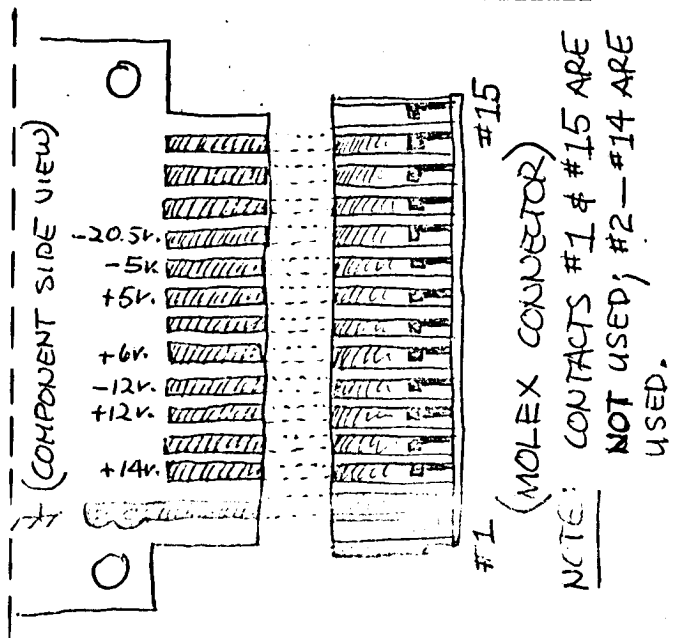 (COMPONENT SIDE VIEW)
-20.5v.
-5v.
+5v.
+6v.
-12v.
+12v.
+14v.
#1
#15
(MOLEX CONNECTOR)
NOTE: CONTACTS #1 & #15 ARE
NOT USED; #2-#14 ARE
USED.